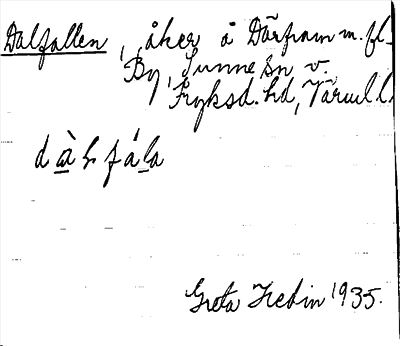 Dalfallen, åker å Därfram m. fl.
By, Sunne sn v.
Fryksd. hd, Värml l.
dàl fála
Greta Hedin 1935.